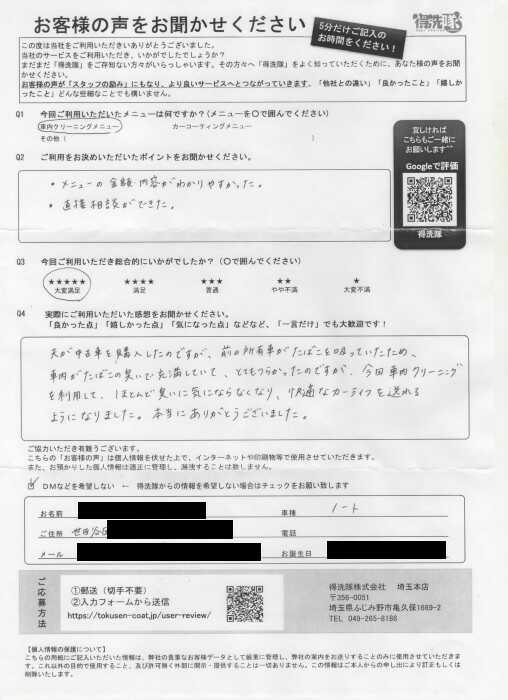 お客様の声をお聞かせください
5分だけご記入の
お時間をください！
得洗隊
この度は当社をご利用いただきありがとうございました。
当社のサービスをご利用いただき、いかがでしたでしょうか？
まだまだ「得洗隊」をご存知ない方がいらっしゃいます。その方々へ「得洗隊」をよく知っていただくために、あなた様の声をお聞
かせください。
お客様の声が「スタッフの励み」にもなり、より良いサービスへとつながっていきます。「他社との違い」「良かったこと」「嬉しか
ったこと」どんな些細なことでも構いません。
Q1 今回ご利用いただいたメニューは何ですか？（メニューを〇で囲んでください）
車内クリーニングメニュー カーコーティングメニュー
その他（ ）
Q2 ご利用をお決めいただいたポイントをお聞かせください。
・メニューの金額・内容がわかりやすかった。
・直接相談ができた。
宜しければ
こちらもご一緒に
お願いします^^
Googleで評価
得洗隊
Q3 今回ご利用いただき総合的にいかがでしたか？（〇で囲んでください）
★★★★★ ★★★★ ★★★ ★★ ★
大変満足 満足 普通 やや不満 大変不満
Q4 実際にご利用いただいた感想をお聞かせください。
「良かった点」「嬉しかった点」「気になった点」などなど、「一言だけ」でも大歓迎です！
夫が中古車を購入したのですが、前の所有車がたばこを吸っていたため、
車内がたばこの臭いで充満していて、とてもつらかったのですが、今回車内クリーニング
を利用して、ほとんど臭いに気にならなくなり、快適なカーライフを送れる
ようになりました。本当にありがとうございました。
ご協力いただき有難うございます。
こちらの「お客様の声」は個人情報を伏せた上で、インターネットや印刷物等で使用させていただきます。
また、お預かりした個人情報は適正に管理し、漏洩することは致しません。
☑ DMなどを希望しない ← 得洗隊からの情報を希望しない場合はチェックをお願い致します
お名前 車種 ノート
ご住所 電話
メール お誕生日
ご応募方法
①郵送（切手不要）
②入力フォームから送信
https://tokusen-coat.jp/user-review/
得洗隊株式会社 埼玉本店
〒356-0051
埼玉県ふじみ野市亀久保1669-2
TEL 049-265-8186
【個人情報の保護について】
こちらの用紙にご記入いただい情報は、弊社の貴重なお客様データとして厳重に管理し、弊社の案内をお送りすることのみに使用させていただきま
す。これ以外の目的で使用すること、及び許可無く外部に開示・提供することは一切ありません。この情報はご本人からの申し出により訂正もしくは
削除いたします。